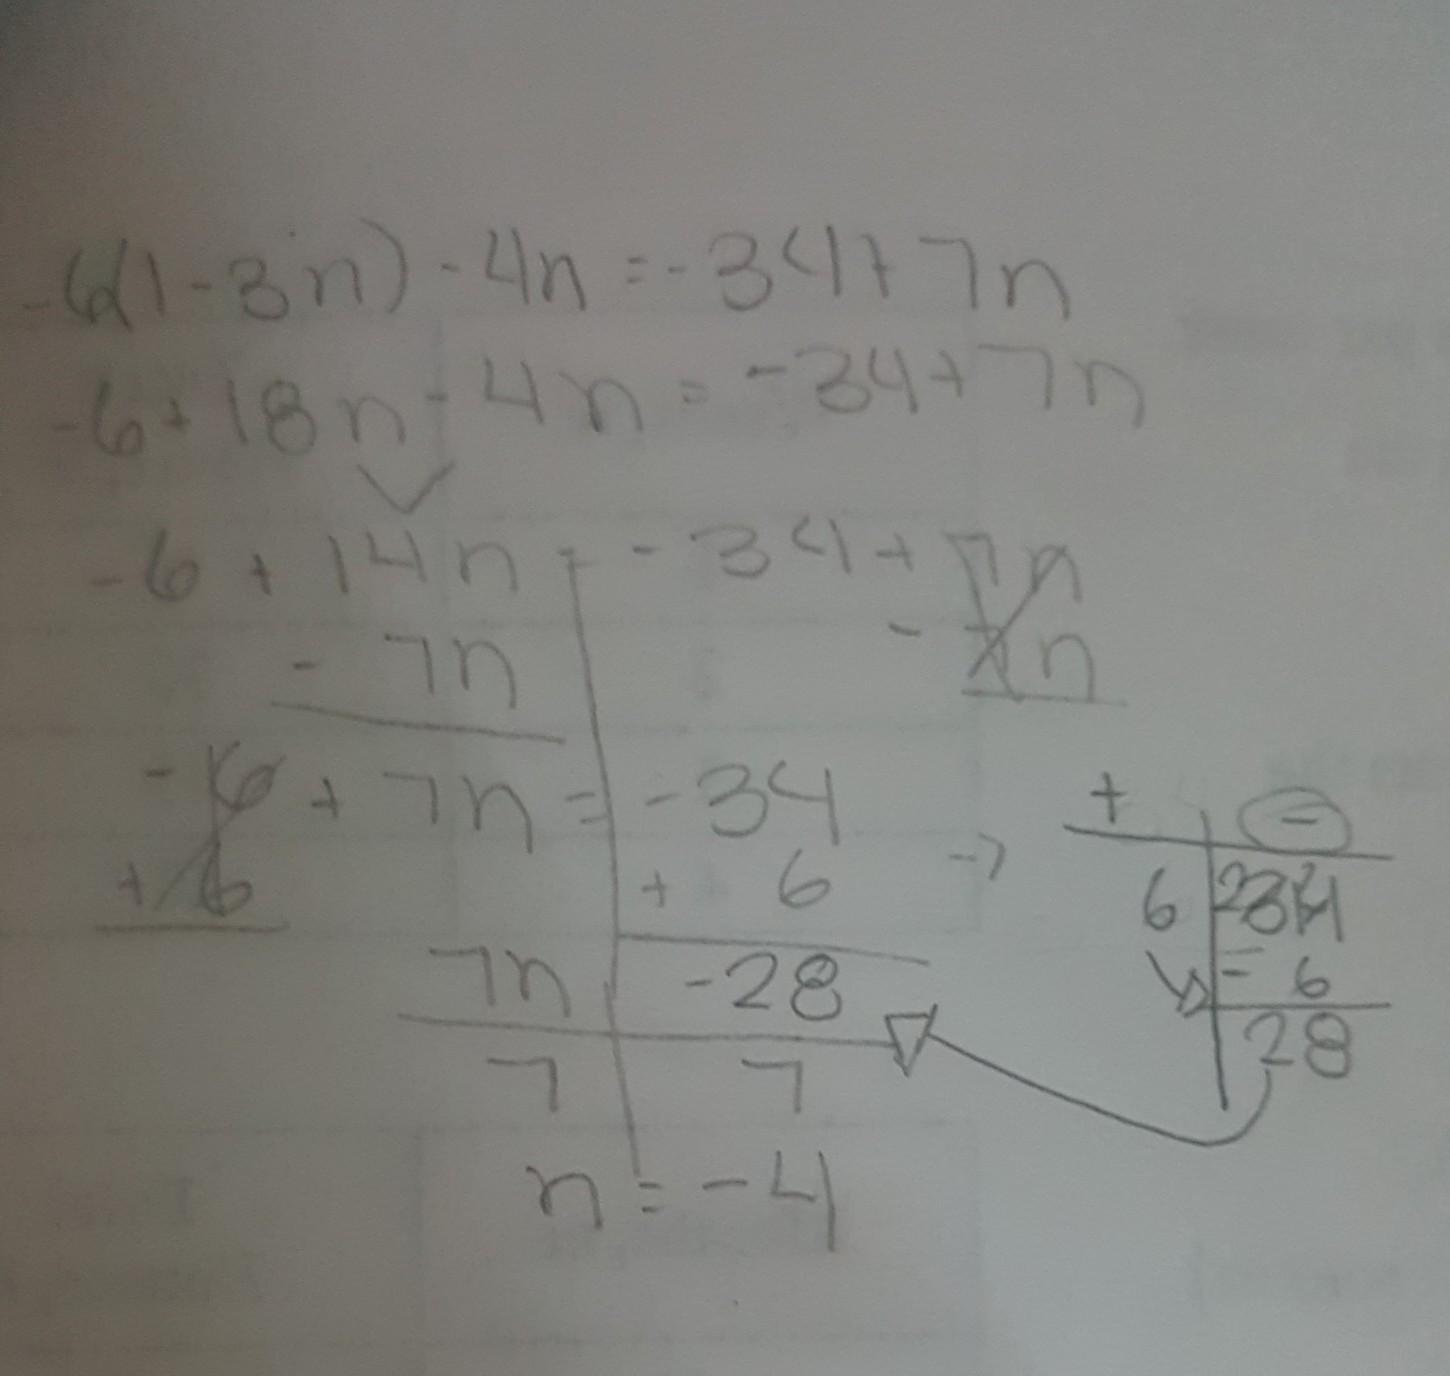 -6(1-3n)-4n=-34+7n
-6+18n-4n=-34+7n
-6+14n=-34+7n
-7n -7n
-6+7n=-34
+6 +6
7n -28
7 7
n=-4
+ -
6 34
- 6
28